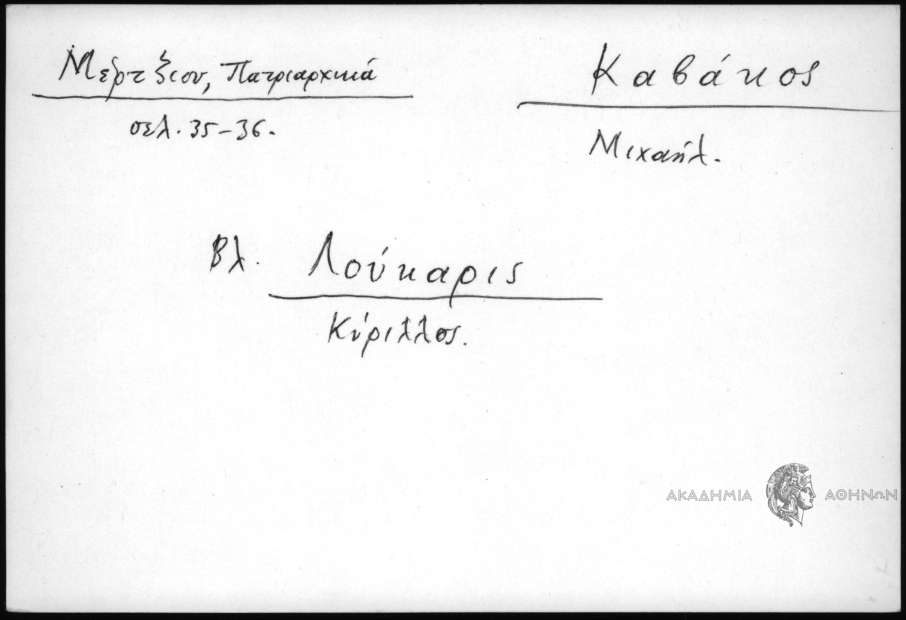 Μέρτζιου, Πατριαρχικά
σελ. 35-36.
Καβάκος
Μιχαήλ.
Βλ. Λούκαρις
Κύριλλος.
ΑΚΑΔΗΜΙΑ ΑΘΗΝΩΝ